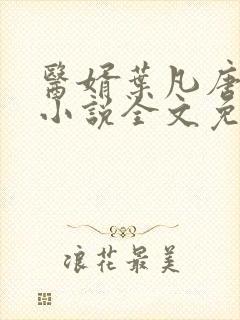 醫婿葉凡唐
小說全文免
浪花最美